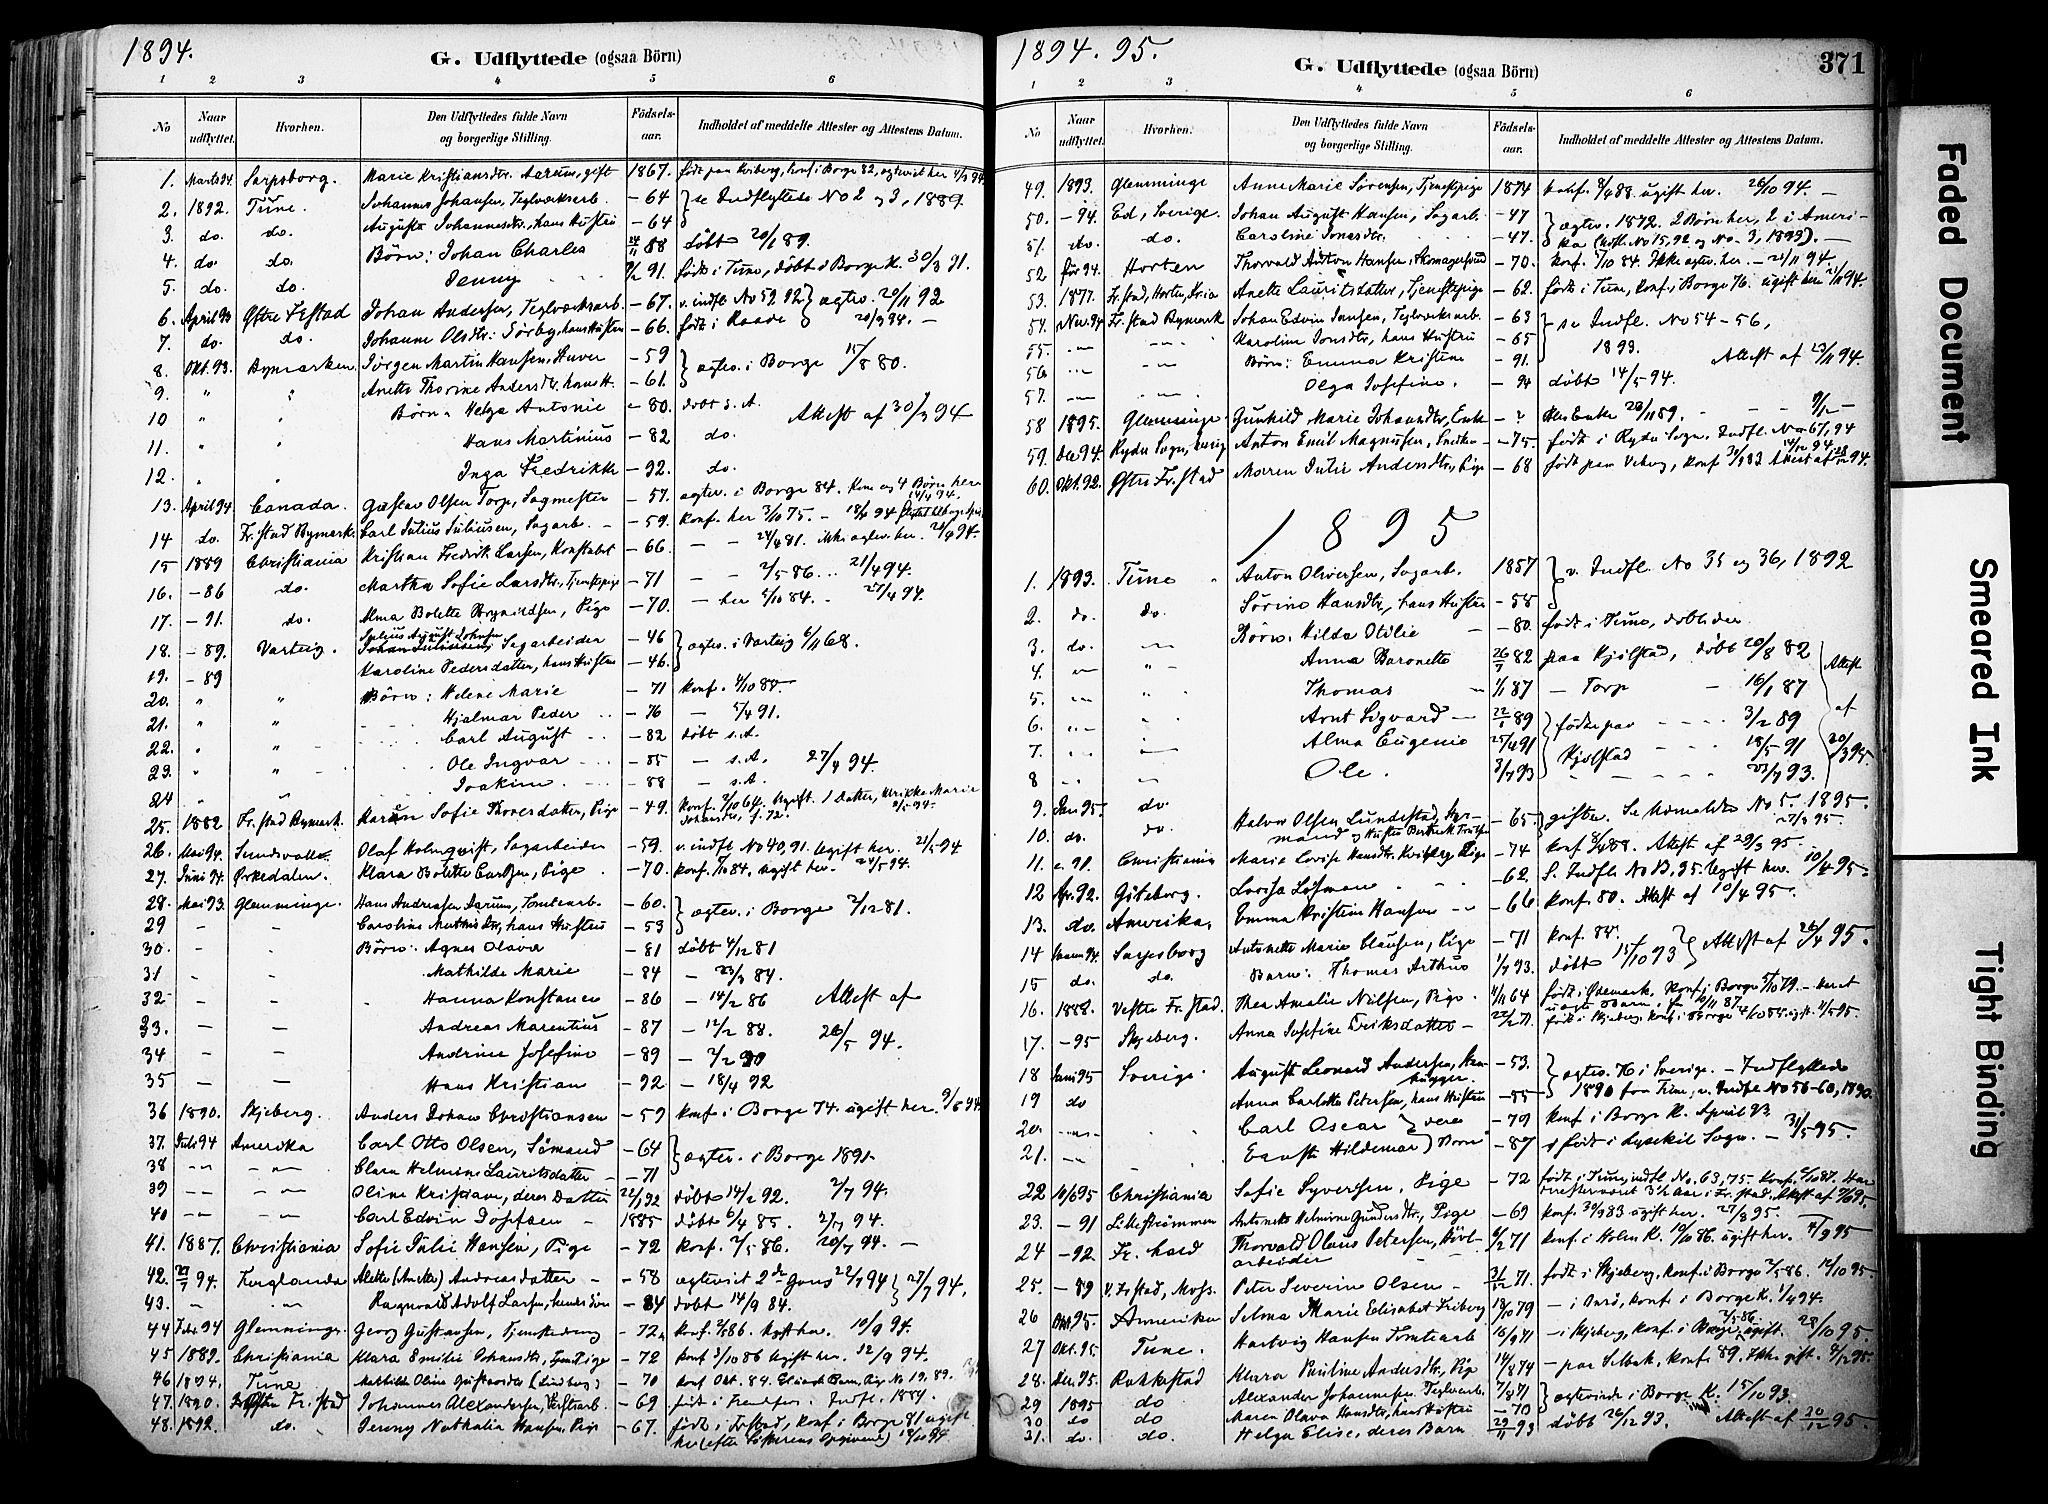 1894.
G. Udflyttede (ogsaa Börn)
1 2 3 4 5 6
No
Naar udflyttet.
Hvorhen.
Den Udflyttedes fulde Navn og borgerlige Stilling.
Födsels-aar.
Indholdet af meddelte Attester og Attestens Datum.
1. Marts 94. Sarpsborg. Marie Kristiansdtr. Aarum, gift 1867.
2. 1892. Tune. Johannes Johansen, Teglværksarb. - 64 se Indflyttede No 2 og 3, 1889.
3. do. do. Augusta Johannesdtr., hans Hustru - 64
4. do. do. Börn: Johan Charles 88 döbt 20/1 89.
5. do. do. Jenny 91. födt i Tune, döbt i Borge K. 30/3 91.
6. April 93 Östre Frstad Johan Andersen, Teglværksarb. - 67. v. indfl. No 59. 92 } ægtev. 20/11 92
7. do. do. Johanne Olsdtr. Sörby, hans Hustru - 66. födt i Raade
8. Okt. 93. Bymarken. Jörgen Martin Hansen, - 59 ægtev. i Borge 15/8 80.
9. " " Anette Thorine Andersdtr. hans H. - 61.
10 " " Börn: Helga Antonie - 80. döbt s. A. Attest af 30/3 94
11. " " Hans Martinius - 82 do.
12. " " Inga Fredrikke - 92. do.
13. April 94 Canada. Gustav Olsen Torp, Sagmester - 57. ægtev. i Borge 84. Kone og 4 Börn her
14 do. Fr.stad Bymark. Carl Julius Juliussen, Sagarb. - 59. konf. her 3/10 75.
15 1889 Christiania Kristian Fredrik Larsen, Konstabel - 66. - - 24/4 81. ikke ægtev. her.
16. - 86 do. Martha Sofie Larsdtr., Tjenestepige - 71 - - 2/5 86. 21/4 94.
17. - 91. do. Alma Bolette Brynildsen, Pige - 70. - her 5/10 84. - 27/4 94.
18. - 89. Varteig. Julius August Johansen Sagarbeider - 46 ægtev. i Varteig 6/11 68.
19. - 89 Karoline Pedersdatter, hans Hustru - 46.
20. " " Börn: Helene Marie - 71 konf. 4/10 85.
21. " " Hjalmar Peder - 76 - 5/4 91.
22. " " Carl August - 82 döbt s. A.
23. " " Ole Ingvar - 85 - s. A. 27/4 94.
24 " " Joakim - 88 - s. A.
25. 1882 Fr.stad Bymark. Karen Sofie Thoresdatter, Pige - 49.
26. Mai 94. Sundsvall. Olaf Holmqvist, Sagarbeider - 59. v. indfl No 40, 91. Ugift her. 21/5 94
27. Juni 94. Orkedalen. Klara Bolette Carlsen, Pige - 70. konf. 84. ugift her. 24/5 94.
28. Mai 93. Glemminge. Hans Andreasen Aarum, Tomtearb. - 60. ægtev. i Borge 7/12 81.
29 - - Caroline Mathisdtr., hans Hustru - 53
30. - - Börn: Agnes Olava - 81 döbt 4/12 81
31 - - Mathilde Marie - 84 - 23/3 84.
32 - - Hanna Konstance - 86 - 14/2 86 Attest af
33. - - Andreas Marentius - 87 - 12/2 88. 26/5 94.
34 - - Andrine Josefine - 89 - 7/2 90
35 - - Hans Kristian - 92 - 18/4 92
36 1890. Skjeberg. Anders Johan Christiansen - 59 konf i Borge 74. ugift her. 9/6 94.
37. Juli 94 Amerika Carl Otto Olsen, Sömand - 64 ægtev. i Borge 1891.
38 Clara Helmine Lauritsdatter - 71
39 Oline Kristiane, deres Datter 22/1 92 döbt 14/2 92. 2/7 94.
40 Carl Edvin Josefsen - 1885 döbt 6/4 85. 2/7 94.
41. 1887. Christiania Sofie Julie Hansen, Pige - 72 konf. 2/5 86. 20/7 94.
42. 94. Anette (Anette) Andreasdatter - 58 ægteviet 2de Gang 22/7 94 } 27/7 94.
43. - - Ragnvald Adolf Larsen, hendes Sön - 84 döbt 14/9 84.
44 Febr. 94 Glemminge. Georg Gustavsen, Tjenestedreng - 72. konf. 2/5 86. Ugift her. 10/9 94.
45 1889. Christiania Klara Emilie Johansdtr., Pige - 72 konf 3/10 86 Ugift her. 12/9 94.
46 1894. Tune Mathilde Oline Gustavsdtr (Lindberg) - 70
47. 1890. Fr. stad Johannes Alexandersen, - 69
48. 1892. do. Jenny Nathalia Hansen, Pige - 67. födt i Frstad, konf. i Borge 81 ugift
her (efter Söskerens Opgivende)
1894. 95.
G. Udflyttede (ogsaa Börn)
371
1 2 3 4 5 6
No
Naar udflyttet.
Hvorhen.
Den Udflyttedes fulde Navn og borgerlige Stilling.
Födsels-aar.
Indholdet af meddelte Attester og Attestens Datum.
49. 1893. Glemminge Anne Marie Sörensen, Tjenestepige 1874 konf. 8/4 88. ugift her. 26/10 94.
50. - 94. Ed, Sverige. Johan August Hansen, Sagarb. - 47 ægtev. 1872. 2 Börn her, 2 i Ameri-
51. do. do. Caroline Jonasdtr. - 47. ka (Udfl. No 15, 92 og No 3, 1893).
52. för 94. Horten Thorvald Anton Hansen, - 70. konf. 5/10 84. Ikke ægtev. her.
53. 1877. Fr.stad, Horten, Kr.ia Anette Lauritsdatter, Tjenestepige - 62. födt i Tune, konf. i Borge 76. ugift her
54. Nov. 94 Fr.stad Bymark Johan Edvin Jansen, Teglværksarb. - 63 se Indfl. No 54-56,
55. Karoline Jonsdtr, hans Hustru - 65 1893.
56 Börn: Emma Kristine - 91. Attest af 23/11 94.
57. Olga Josefine. - 94 döbt 14/5 94.
58 1895. Glemminge. Gunhild Marie Johansdtr, Enke - ?
59. Dec 94. Rydu Sogn, Sverig Anton Emil Magnusen, Snedker - 75 födt i Rydu Sogn. Indfl. No 67, 94
60. Okt. 92. Östre Fr.stad Maren Julie Andersdtr, Pige - 68
1895
1. 1893. Tune Anton Oliversen, Sagarb. 1857 v. Indfl. No 35 og 36, 1892
2. do. do. Sörine Hansdtr, hans Hustru - 58
3. do. Börn: Hilda Otilie - 80. födt i Tune, döbt der.
4. Anna Baronette 82 paa Kjölstad, döbt 20/8 82 Attest
5. Thomas 1/1 87 - Torp - 16/1 87
6. Arnt Sigvard 89 födte paa 3/2 89 af
7. Alma Eugenie 25/4 91 Kjölstad 18/5 91 20/3 95.
8 Ole. 3/7 93 23/7 93.
9. Jan 95. do. Halvor Olsen Lundestad, Gaar- - 65. gifter. Se No 5. 1895.
10. do. do.
11. 91. Christiania Marie Lovise Hansdtr. Pige - 74 konf 8/4 88. Attest af 29/3 95.
12 Apr. 92. Göteborg. Lovisa Löfman - 62. Ugift her. 10/4 95.
13. do. Amerika. Emma Kristine Hansen - 66 konf. 80. Attest af 10/4 95.
14 94. Sarpsborg Antonette Marie Clausen, Pige - 71 konf. 85. } Attest af 26/4 95.
15 do. do. Barn: Thomas Arthur 93. döbt 15/10 93
16. 1888. Vestre Fr.stad. Thea Amalie Nilsen, Pige. 64 födt i Ödemark, konf. i Borge 5/10 79.
17. - 95 Skjeberg. Anna Josefine Eriksdatter - 71. födt i Skjeberg, konf. i Borge
18 Juni 95 Sverige. August Leonard Andersen, Sten- - 53. ægtev. 76 i Sverige. - Indflyttede
hugger.
19 do Anna Carlotte Petersen, hans Hustru - 55 1890 fra Tune, v. Indfl No 56-60, 1890.
20. Carl Oscar } deres - 79 konf i Borge K. April 93.
21. Ernst Hildemar } Börn - 87 födt i Lysekil Sogn. - 31/5 95.
22 10/6 95 Christiania Sofie Syversen, Pige - 72 födt i Tune, indfl No. 63, 75.
23. - 91 Lilleströmmen Antonette Helmine Gundersdtr., Pige - 69 konf. 30/9 83 ugift her. 27/8 95.
24 - 92. Fr. hald Thorvald Olaus Petersen, 71 konf. i Holm K. 10/10 86. ugift her.
arbeider
25. - 89 V. Fr.stad, Moss. Peter Severin Olsen 71. födt i Skjeberg, konf. i Borge 2/5 86. 12/10 95.
26 Okt. 95. Amerika Selma Marie Elisabet Friberg 79 - i Onsö, konf. i Borge K. 94.
27 Okt. 95. Tune. Hartvig Hansen Tomtearb 71 - i Skjeberg, konf. i Borge ugift. 28/10 95.
28. Dec. 95. Rakkestad Klara Pauline Andersdtr., Pige 74 - paa Selbak, konf. 89. Ikke gift.
29 1895 do Alexander Johannesen, Teglværksarb. 71 ægteviede i Borge K. 15/10 93.
30 do do Maren Olava Hansdtr, hans Hustru - 70
31. do. do. Helga Elise, deres Barn 93 döbt 26/12 93. Attest af 30/12 95.
Faded Document
Smeared Ink
Tight Binding